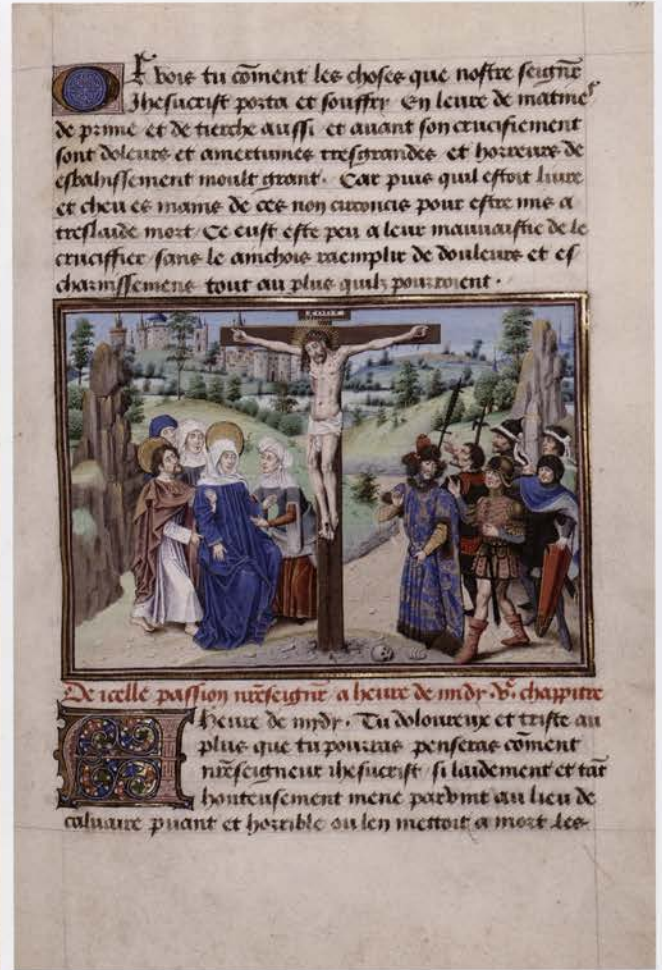 Or vois tu cōment les choses que nostre seignr̄
Jhesucrist porta et souffry En leure de matines
de prime et de tierche aussi et auant son crucifiement
sont doleurs et amertumes tresgrandes et horreurs de
esbahissement moult grant. Car puis quil estoit liure
et cheu es mains de ces non circoncis pour estre mis a
treslaide mort Ce eust este peu a leur mauuaistie de le
cruciffier sans le ainchois raemplir de douleurs et es
charnissemens tout au plus quilz pourroient.
De icelle passion nr̄eseignr̄ a heure de midy. Ve. chappitre
A heure de mydy. Tu doloureux et triste au
plus que tu pourras penseras cōment
nr̄eseigneur ihesucrist si laidement et tāt
honteusement mene paruint au lieu de
caluaire puant et horrible ou len mettoit a mort les